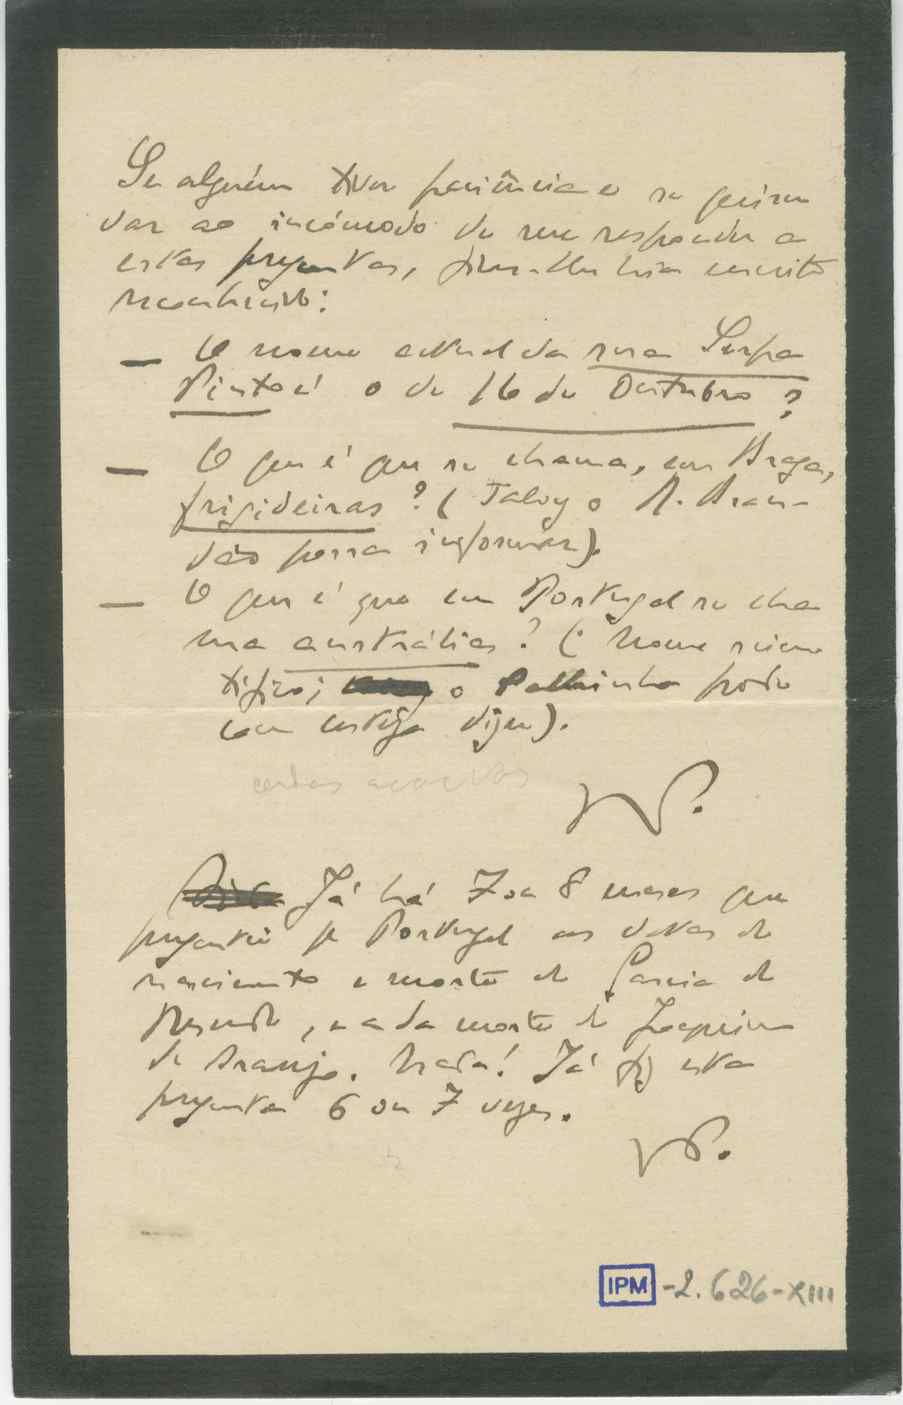 Se alguém tiver paciência e se quiser
dar ao incómodo de me responder a
estas preguntas, ficar-lhe-hia muito
reconhecido:
— O nome actual da rua Serpa
Pinto é o de 16 de Outubro?
— O que é que se chama, em Braga,
frigideiras? (Talvez o R. Bran-
dão possa informar).
— O que é que em Portugal se cha
ma austrália? (Nome scien
tifico; o Palhinha pode
com certeza dizer).
certas acacias
Já há 7 ou 8 meses que
preguntei pª Portugal as datas de
nascimento e morte de Garcia de
Resende, e a da morte de Joaquim
de Araujo. Nada! Já fiz esta
pregunta 6 ou 7 vezes.
IPM -2.626-XIII